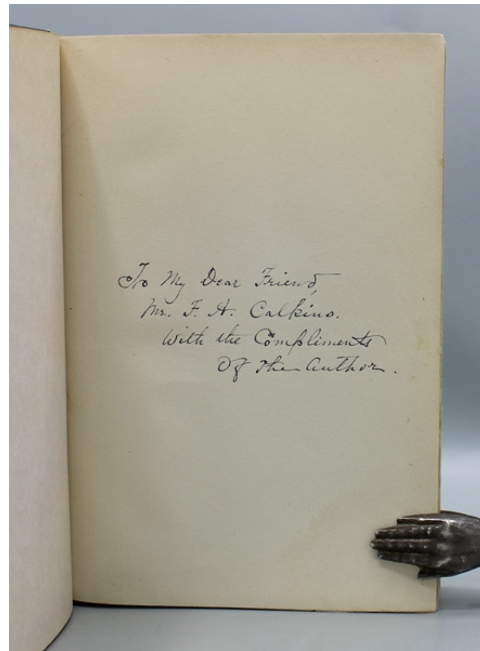 To My Dear Friend,
Mr. F. A. Calkins.
With the Compliments
Of the Author.